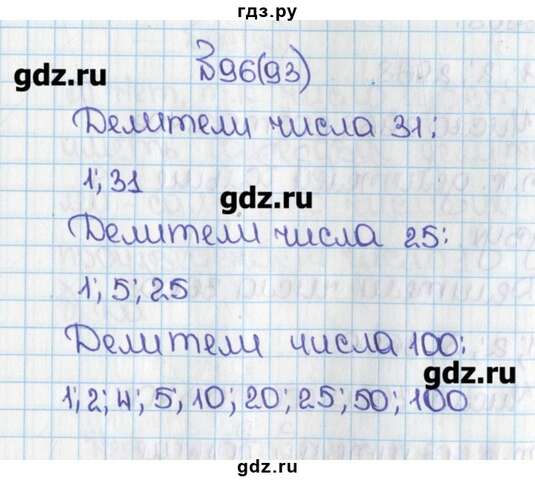 гдз.ру
№96(93)
gdz.ru
Делители числа 31:
1; 31
gdz.ru
Делители числа 25:
1; 5; 25
Делители числа 100:
gdz.ru
1; 2; 4; 5; 10; 20; 25; 50; 100
гдз.ру